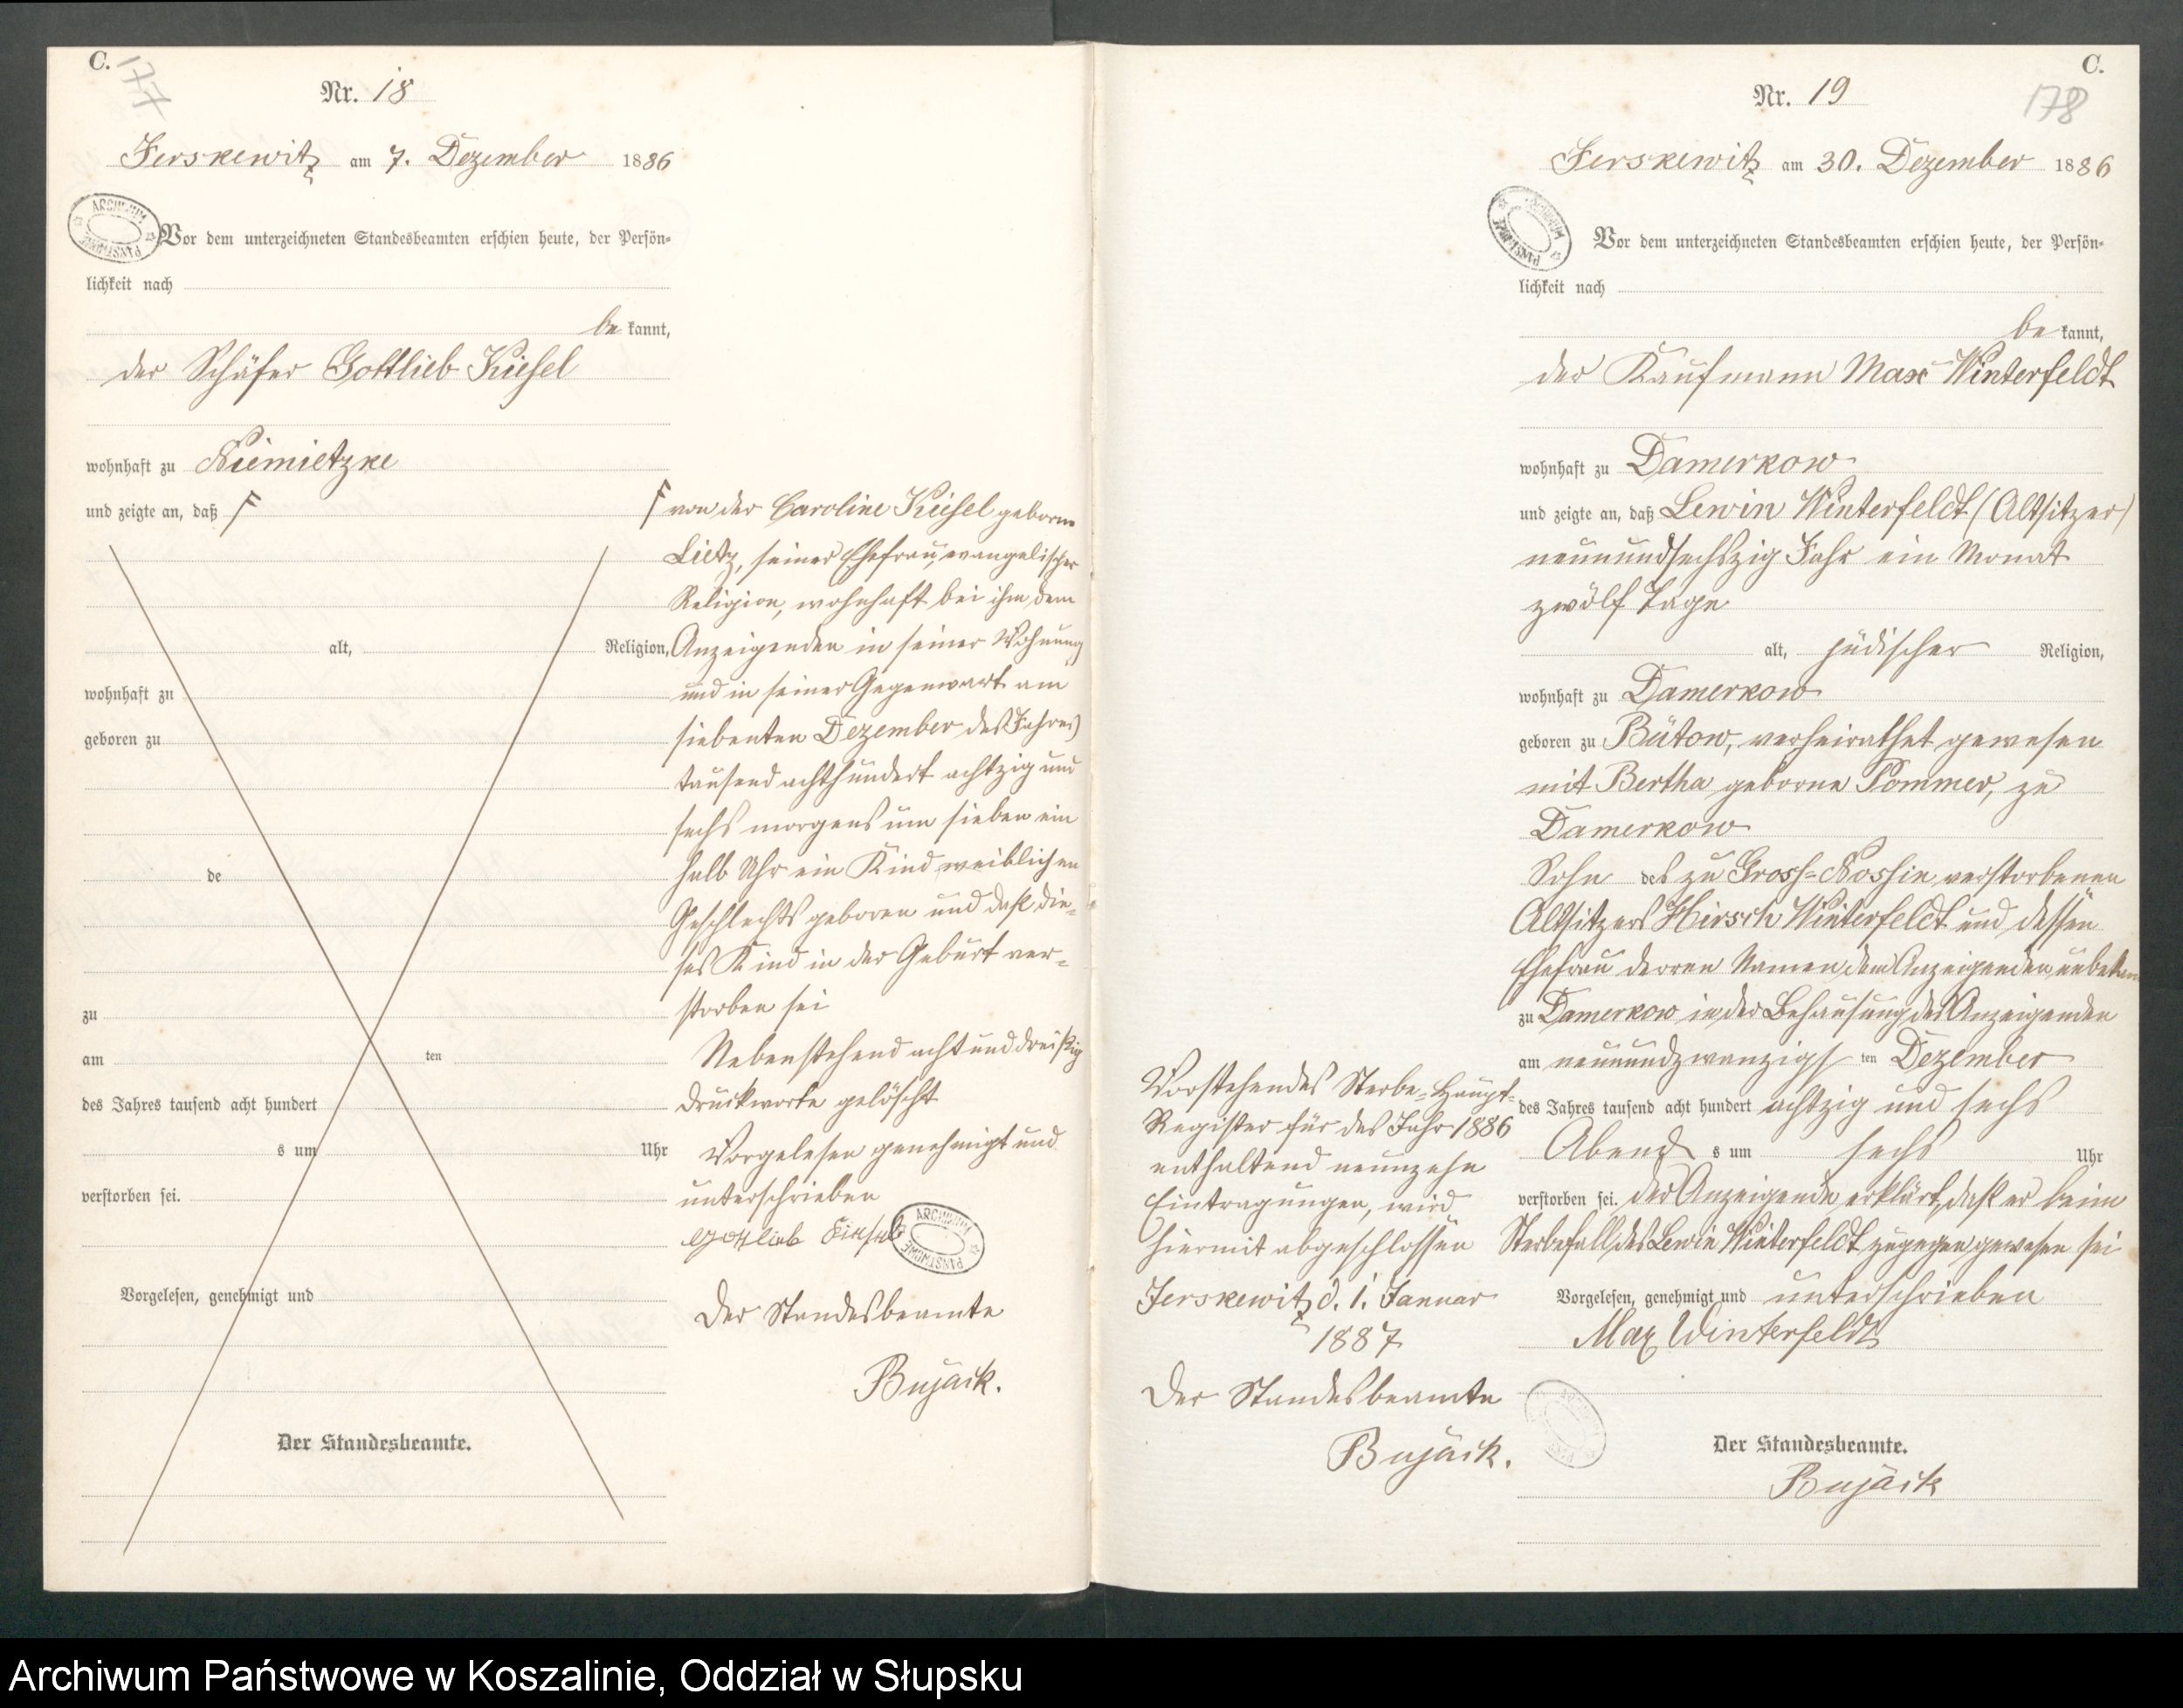 C.
177
Nr. 18
Jerskewitz am 7. Dezember 1886
Vor dem unterzeichneten Standesbeamten erschien heute, der Persön-
lichkeit nach
be kannt,
der Schäfer Gottlieb Kiesel
wohnhaft zu Niemietzke
und zeigte an, daß F
alt, Religion,
wohnhaft zu
geboren zu
de
zu
am ten
des Jahres tausend acht hundert
s um Uhr
verstorben sei.
Vorgelesen, genehmigt und
Der Standesbeamte.
F von der Caroline Kiesel geborne
Lietz, seiner Ehefrau, evangelischer
Religion, wohnhaft bei ihm dem
Anzeigenden in seiner Wohnung
und in seiner Gegenwart am
siebenten Dezember des Jahres
tausend achthundert achtzig und
sechs morgens um sieben ein
halb Uhr ein Kind weiblichen
Geschlechts geboren und daß die-
ses Kind in der Geburt ver-
storben sei
Nebenstehend acht und dreißig
Druckworte gelöscht
Vorgelesen genehmigt und
unterschrieben
Gottlieb
ARCHIWUM PAŃSTWOWE
Der Standesbeamte
Bujack.
C.
178
Nr. 19
Jerskewitz am 30. Dezember 1886
Vor dem unterzeichneten Standesbeamten erschien heute, der Persön-
lichkeit nach
be kannt,
der Kaufmann Max Winterfeldt
wohnhaft zu Damerkow
und zeigte an, daß Lewin Winterfeldt (Altsitzer)
neunundsechszig Jahr ein Monat
zwölf Tage
alt, jüdischer Religion,
wohnhaft zu Damerkow
geboren zu Bütow, verheirathet gewesen
mit Bertha geborne Pommer, zu
Damerkow
Sohn des zu Gross-Nossin verstorbenen
Altsitzers Hirsch Winterfeldt und dessen
Ehefrau deren Namen dem Anzeigenden unbekannt
zu Damerkow in der Behausung des Anzeigenden
am neunundzwanzigs ten Dezember
des Jahres tausend acht hundert achtzig und sechs
Abend s um sechs Uhr
verstorben sei. Der Anzeigende erklärt, daß er beim
Sterbefall des Lewin Winterfeldt zugegen gewesen sei
Vorgelesen, genehmigt und unterschrieben
Max Winterfeldt
Der Standesbeamte.
Bujack
Vorstehendes Sterbe-Haupt-
Register für das Jahr 1886
enthaltend neunzehn
Eintragungen, wird
hiermit abgeschlossen
Jerskewitz d. 1. Januar
1887
Der Standesbeamte
Bujack.
Archiwum Państwowe w Koszalinie, Oddział w Słupsku